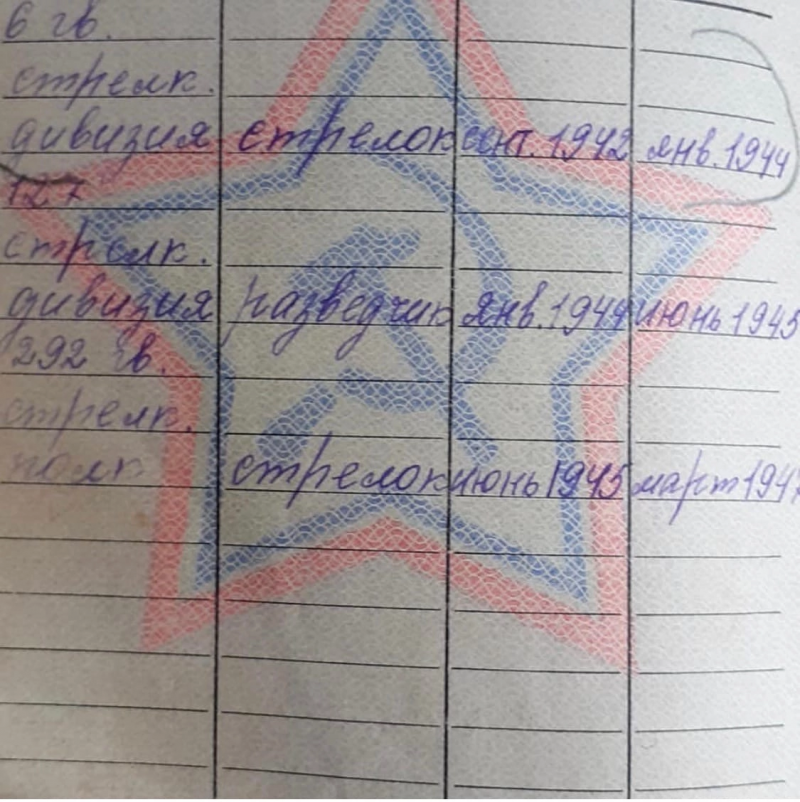 6 гв.
стрелк.
дивизия стрелок сент. 1942 янв. 1944
127
стрелк.
дивизия разведчик янв. 1944 июнь 1945
292 гв.
стрелк.
полк стрелок июнь 1945 март 1947